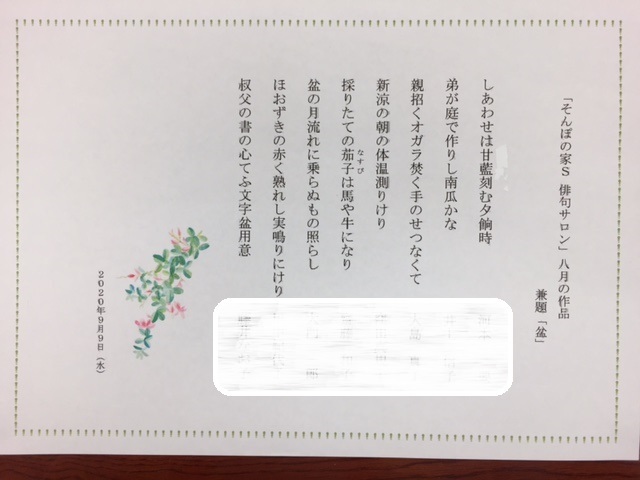 「そんぽの家S 俳句サロン」八月の作品
兼題「盆」
しあわせは甘藍刻む夕餉時
弟が庭で作りし南瓜かな
親招くオガラ焚く手のせつなくて
新涼の朝の体温測りけり
採りたての茄子は馬や牛になり
なすび
盆の月流れに乗らぬもの照らし
ほおずきの赤く熟れし実鳴りにけり
叔父の書の心てふ文字盆用意
2020年9月9日（水）